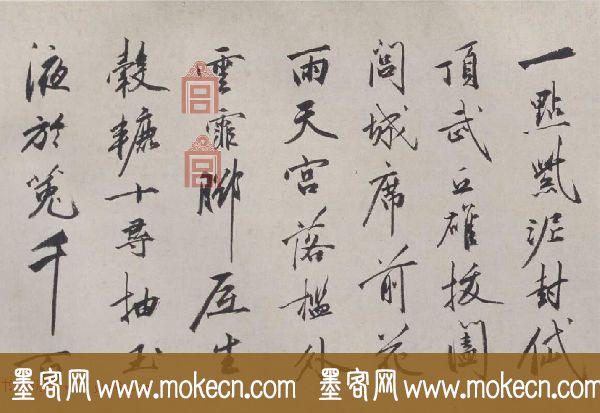 一點紫泥封岱
頂武丘雄拔闔
閭城席前花
雨天宮落檻外
雲霏腳底生
轂轆十尋抽玉
液於菟千
墨客网 www.mokecn.com 墨客网 www.mokecn.com